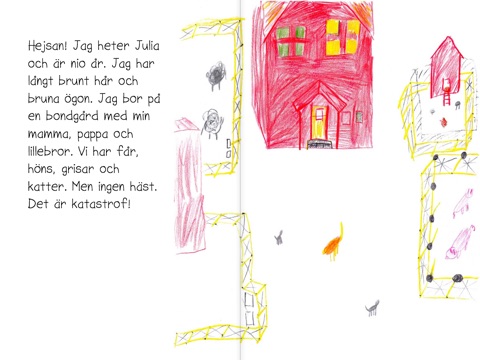 Hejsan! Jag heter Julia
och är nio år. Jag har
långt brunt hår och
bruna ögon. Jag bor på
en bondgård med min
mamma, pappa och
lillebror. Vi har får,
höns, grisar och
katter. Men ingen häst.
Det är katastrof!